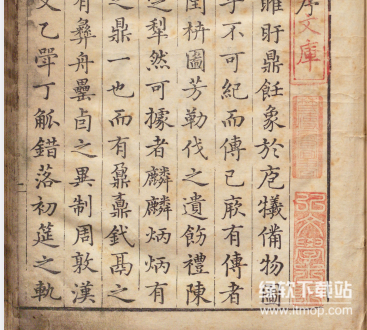 文庫
睢盱鼎飪象於庖犧備物圖
不可紀而傳已厥有傳者
圖芳勒伐之遺飭禮陳
之犁然可據者麟麟炳炳有
之鼎一也而有鼐鼒釴鬲之
有彝舟罍卣之異制周敦漢
文乙斝丁觚錯落初筵之軌
二
www.itmop.com